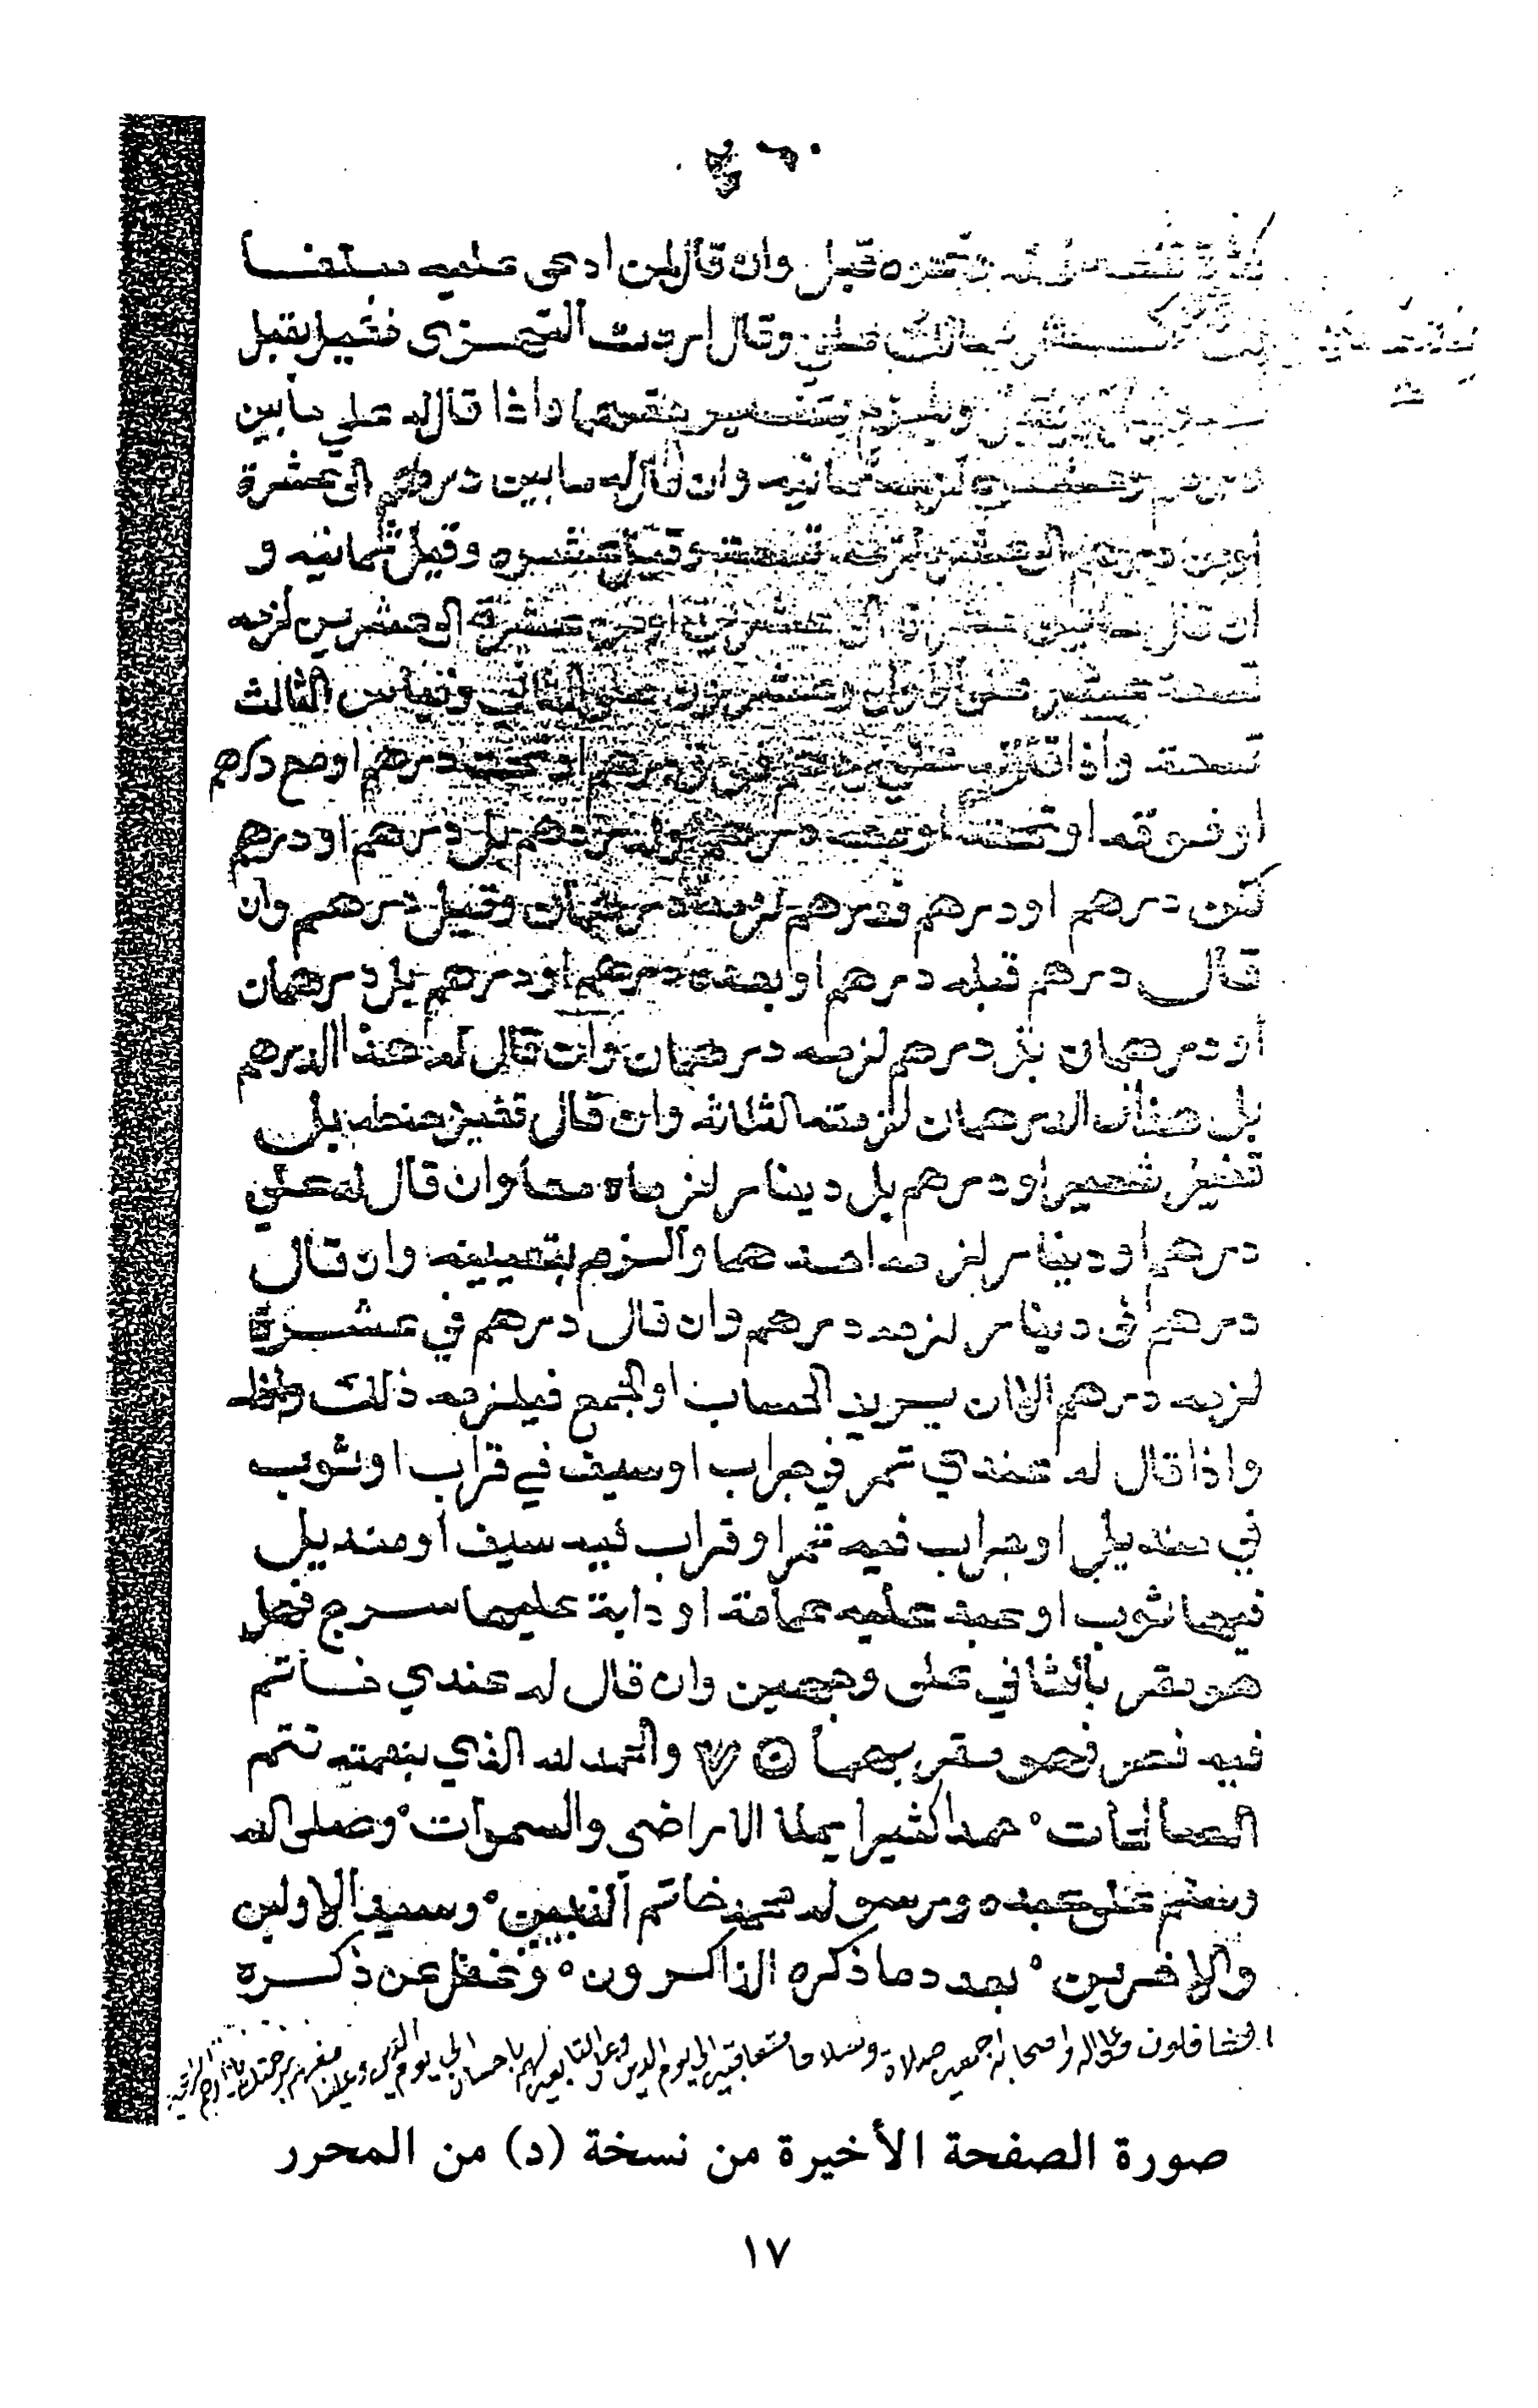 قبل وان قال لمن ادعى عليه مبلغا
وقال اردت التهزى فقيل يقبل
واذا قال له علي مابين
درهم وعشره لزمه ثمانيه وان قال له مابين درهم الى عشرة
اومن درهم الى عشره لزمه تسعة وقيل عشره وقيل ثمانيه و
ان قال مابين عشرة الى عشرين اومن عشرة الى عشرين لزمه
تسعة عشر على الاول وعشرون على الثاني وقياس الثالث
تسعة واذا قال له علي درهم فوق درهم اوتحت درهم اومع درهم
اوفوقه اوتحته اومعه درهم اودرهم بل درهم اودرهم
لكن درهم اودرهم فدرهم لزمه درهمان وقيل درهم وان
قال درهم قبله درهم اوبعده درهم اودرهم بل درهمان
اودرهمان بل درهم لزمه درهمان وان قال له هذا الدرهم
بل هذان الدرهمان لزمته الثلاثه وان قال قفيز حنطه بل
قفيز شعير اودرهم بل دينار لزماه معا وان قال له علي
درهم اودينار لزمه احدهما والزم بتعيينه وان قال
درهم في دينار لزمه درهم وان قال درهم في عشرة
لزمه درهم الا ان يريد الحساب اوالجمع فيلزمه ذلك
واذا قال له عندي تمر في جراب اوسيف في قراب اوثوب
في منديل اوجراب فيه تمر اوقراب فيه سيف اومنديل
فيها ثوب اوعبد عليه عمامة اودابة عليها سرج فهل
هو مقر بالثاني على وجهين وان قال له عندي خاتم
فيه فص فهو مقر بهما والحمد لله الذي بنعمته تتم
الصالحات حمدا كثيرا يملا الاراضى والسموات وصلى الله
وسلم على عبده ورسوله محمد خاتم النبيين وسيد الاولين
والاخرين بعدد ما ذكره الذاكرون وغفل عن ذكره
الغافلون وعلى اله واصحابه اجمعين صلاة وسلاما متعاقبين الى يوم الدين وعلى التابعين لهم باحسان الى يوم الدين وعلينا معهم برحمتك يا ارحم الراحمين
صورة الصفحة الأخيرة من نسخة (د) من المحرر
١٧